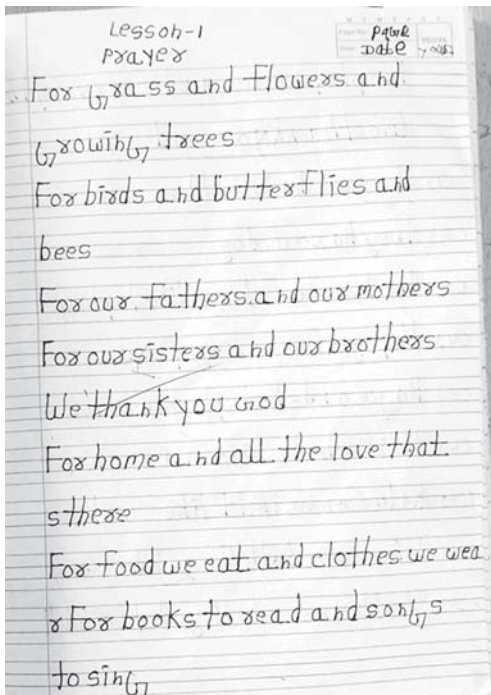 Lesson-1
Prayer
Date
For Grass and flowers and
GrowinG trees
For birds and butterflies and
bees
For our fathers.and our mothers
For our sisters and our brothers
We thank you God
For home and all the love that
sthere
For food we eat and clothes we wea
r For books to read and sonGs
to sinG